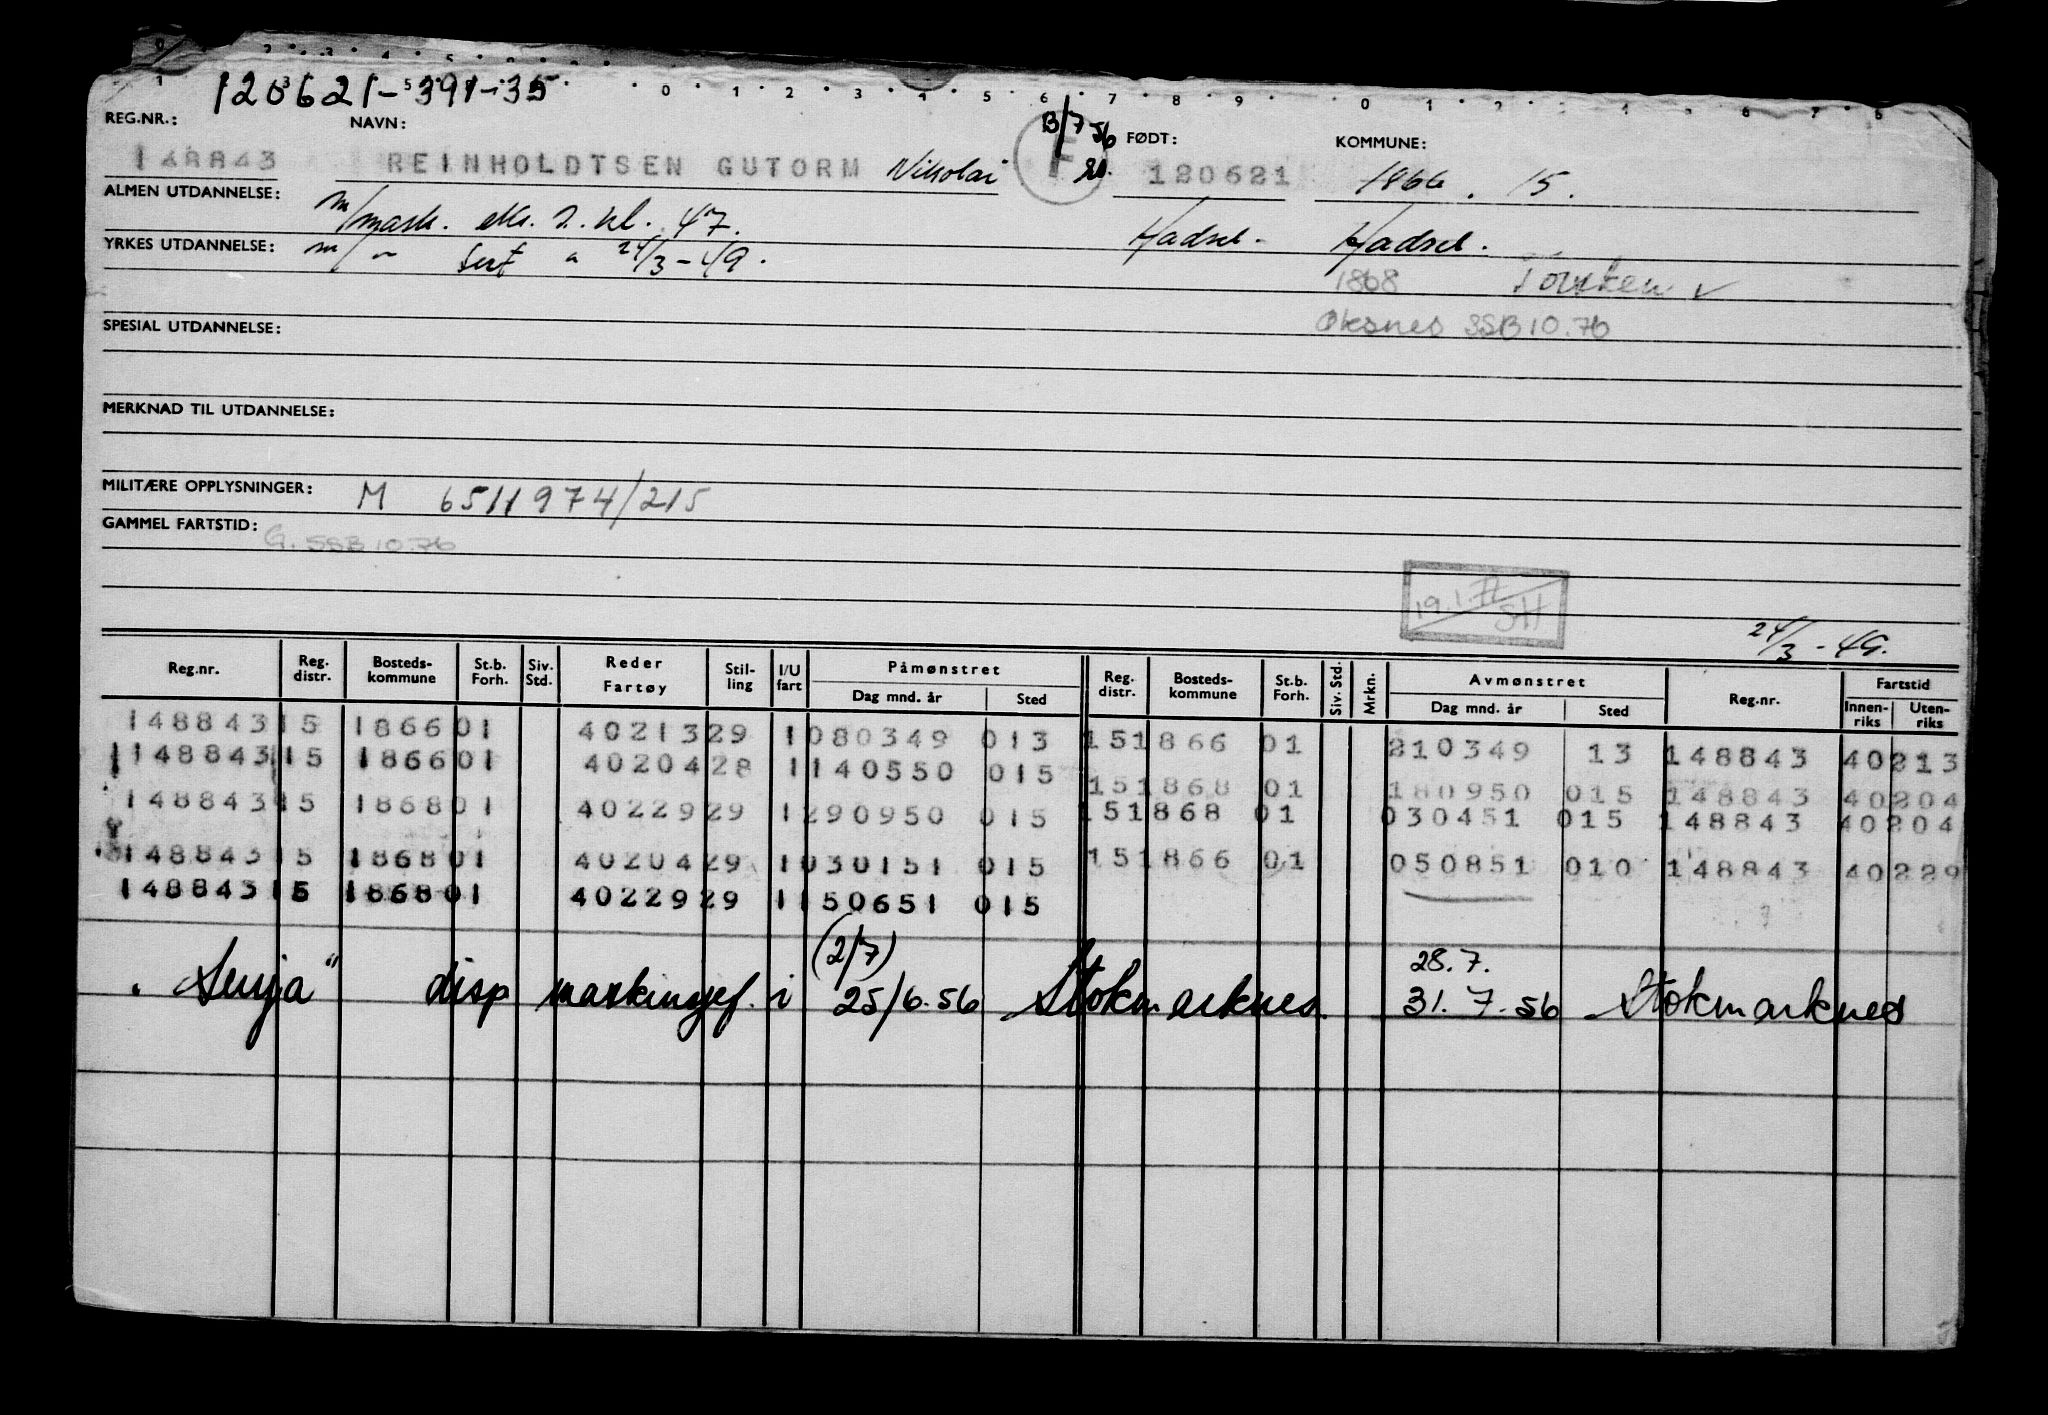 120621-39135
REG.NR.: NAVN: FØDT: KOMMUNE:
148843 REINHOLDTSEN GUTORM Nikolai F 13/7 56 120621 1866. 15.
ALMEN UTDANNELSE: m/mask. eks. 2. kl. 47. Hadsel. Hadsel.
YRKES UTDANNELSE: m/ - Sert a 24/3-49.
1868 Torsken v
Øksnes SSB 10.76
SPESIAL UTDANNELSE:
MERKNAD TIL UTDANNELSE:
MILITÆRE OPPLYSNINGER: M 6511974/215
GAMMEL FARTSTID: G. SSB 10.76
19.1.77 SH
24/3-49.
Reg.nr. Reg. distr. Bosteds-kommune St.b. Forh. Siv. Std. Reder Fartøy Stil-ling I/U fart Påmønstret Dag mnd. år Sted Reg. distr. Bosteds-kommune St.b. Forh. Siv. Std. Mrkn. Avmønstret Dag mnd. år Sted Reg.nr. Fartstid Innen-riks Uten-riks
148843 15 1866 01 40213 29 1 080349 013 15 1866 01 210349 13 148843 40213
1 148843 15 1866 01 40204 28 1 140550 015 15 1868 01 180950 015 148843 40204
148843 15 1868 01 40229 29 1 290950 015 15 1868 01 030451 015 148843 40204
148843 15 1868 01 40204 29 1 030151 015 15 1866 01 050851 010 148843 40229
148843 15 1868 01 40229 29 1 150651 015
(2/7) 28.7.
"Senja" disp maskinsjef. i 25/6.56 Stokmarknes. 31.7.56 Stokmarknes